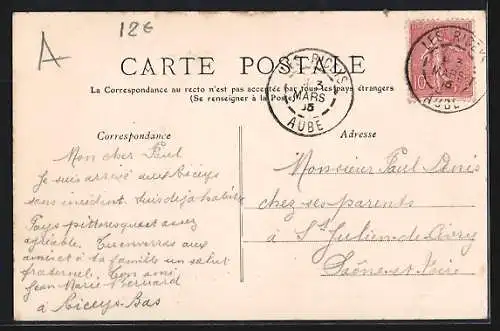 A
12€
CARTE POSTALE
La Correspondance au recto n'est pas acceptée par tous les pays étrangers
(Se renseigner à la Poste)
LES RICEYS
MARS
AUBE
LES RICEYS
MARS
AUBE
10
Correspondance
Adresse
Mon cher Paul
Je suis arrivé aux Riceys
sans incident. Suis déjà habitué
Pays pittoresque et assez
agréable. Tu enverras aux
amis et à ta famille un salut
fraternel. Ton ami
Jean Marie Bernard
à Riceys-Bas
Monsieur Paul Denis
chez ses parents
à St Julien-de-Civry
Saône-et-Loire